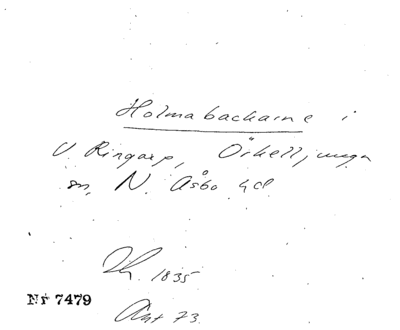 Holmabackarne i
V. Ringarp, Örkelljunga
sn, N. Åsbo hd
1835
Nr 7479
Ant 73.